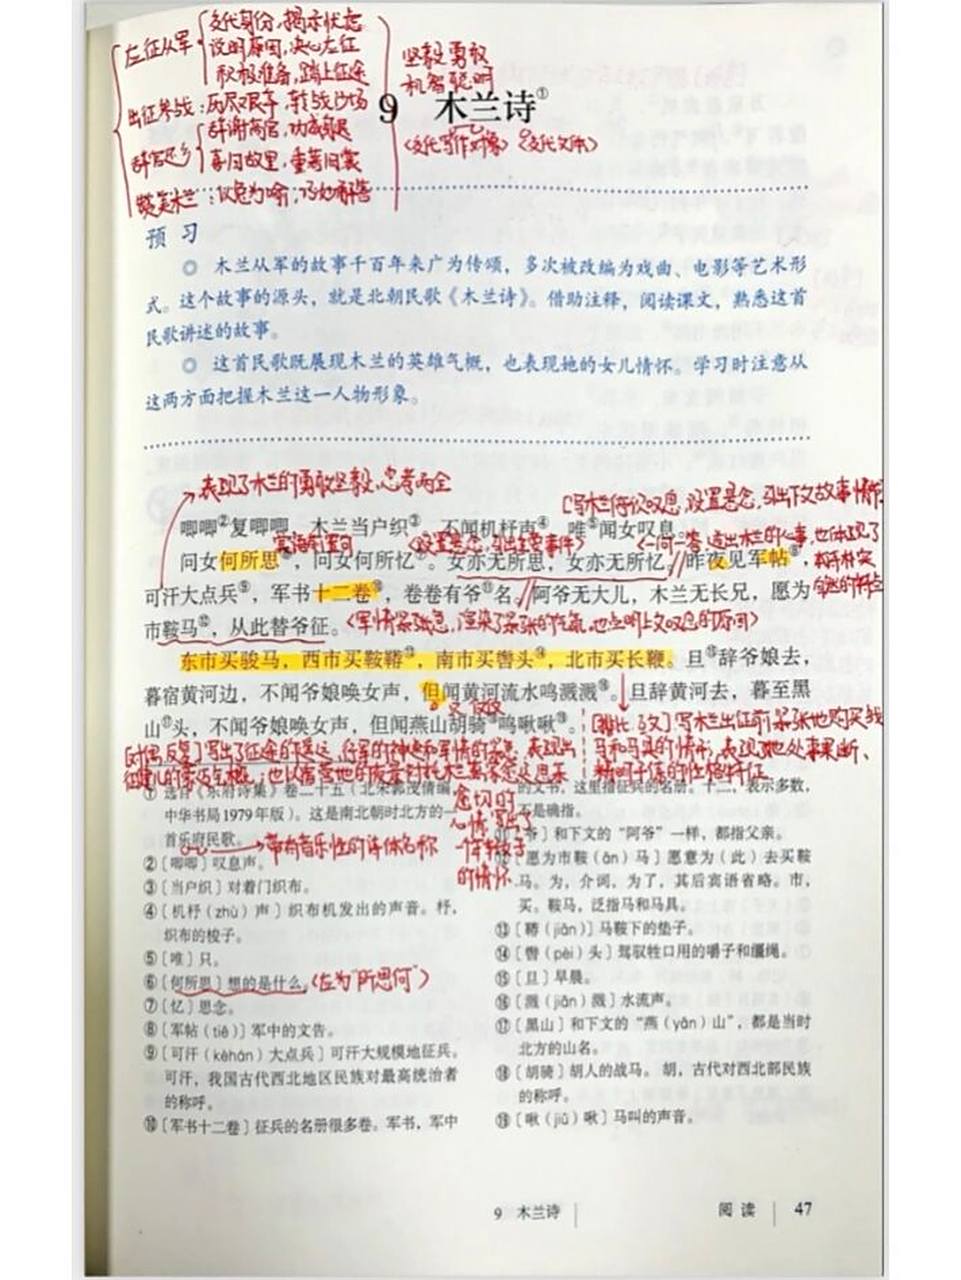 交代身份，揭示忧虑
左征从军 说明原因，决心左征
积极准备，踏上征途
出征参战：历尽艰辛，转战沙场
辞官还乡 辞谢高官，功成身退
喜归故里，重着旧裳
赞美木兰：以兔为喻，巧妙解答
坚毅勇敢
机智聪明
9 木兰诗①
〈交代写作对象〉〈交代文体〉
预习
○ 木兰从军的故事千百年来广为传颂，多次被改编为戏曲、电影等艺术形
式。这个故事的源头，就是北朝民歌《木兰诗》。借助注释，阅读课文，熟悉这首
民歌讲述的故事。
○ 这首民歌既展现木兰的英雄气概，也表现她的女儿情怀。学习时注意从
这两方面把握木兰这一人物形象。
表现了木兰的勇敢坚毅、忠孝两全
[写木兰停织叹息，设置悬念，引出下文故事情节
唧唧②复唧唧，木兰当户织③。不闻机杼声④，唯⑤闻女叹息。
宾语前置句 〈设置悬念，引出主要事件〉 〈一问一答，道出木兰的心事，也体现了
问女何所思⑥，问女何所忆⑦。女亦无所思，女亦无所忆。昨夜见军帖⑧，
可汗大点兵⑨，军书十二卷⑩，卷卷有爷⑪名。阿爷无大儿，木兰无长兄，愿为
市鞍马⑫，从此替爷征。〈军情紧急，渲染了紧张的气氛，也点明上文叹息的原因〉
东市买骏马，西市买鞍鞯⑬，南市买辔头⑭，北市买长鞭。旦⑮辞爷娘去，
暮宿黄河边，不闻爷娘唤女声，但闻黄河流水鸣溅溅⑯。旦辞黄河去，暮至黑
只，仅仅
山⑰头，不闻爷娘唤女声，但闻燕山胡骑⑱鸣啾啾⑲。
[排比、互文]写木兰出征前紧张地购买战
马和马具的情形，表现她处事果断、
精明干练的性格特征
[对偶、反复]写出了征途的遥远、行军的神速和军情的紧急，表现出
① 选自《乐府诗集》卷二十五（北宋郭茂倩编，
中华书局1979年版）。这是南北朝时北方的一
首乐府民歌。
带有音乐性的诗体名称
②〔唧唧〕叹息声。
③〔当户织〕对着门织布。
④〔机杼（zhù）声〕织布机发出的声音。杼，
织布的梭子。
⑤〔唯〕只。
⑥〔何所思〕想的是什么。（应为“所思何”）
⑦〔忆〕思念。
⑧〔军帖（tiě）〕军中的文告。
⑨〔可汗（kèhán）大点兵〕可汗大规模地征兵。
可汗，我国古代西北地区民族对最高统治者
的称呼。
⑩〔军书十二卷〕征兵的名册很多卷。军书，军中
的文书，这里指征兵的名册。十二，表示多数，
不是确指。
⑪〔爷〕和下文的“阿爷”一样，都指父亲。
⑫〔愿为市鞍（ān）马〕愿意为（此）去买鞍
马。为，介词，为了，其后宾语省略。市，
买。鞍马，泛指马和马具。
⑬〔鞯（jiān）〕马鞍下的垫子。
⑭〔辔（pèi）头〕驾驭牲口用的嚼子和缰绳。
⑮〔旦〕早晨。
⑯〔溅（jiān）溅〕水流声。
⑰〔黑山〕和下文的“燕（yān）山”，都是当时
北方的山名。
⑱〔胡骑〕胡人的战马。胡，古代对西北部民族
的称呼。
⑲〔啾（jiū）啾〕马叫的声音。
9 木兰诗
阅读 47